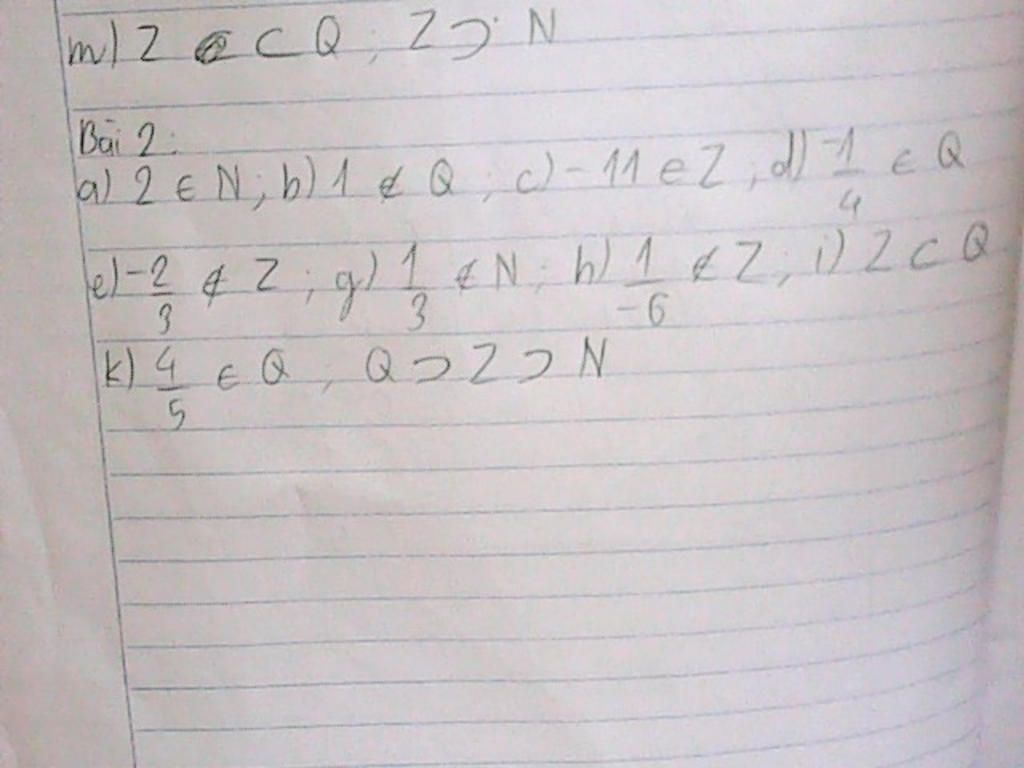 m) Z ⊂ Q ; Z ⊃ N
Bài 2:
a) 2 ∈ N; b) 1 ∉ Q ; c) -11 ∈ Z ; d) -1/4 ∈ Q
e) -2/3 ∉ Z ; g) 1/3 ∉ N ; h) 1/-6 ∉ Z ; i) Z ⊂ Q
k) 4/5 ∈ Q ; Q ⊃ Z ⊃ N